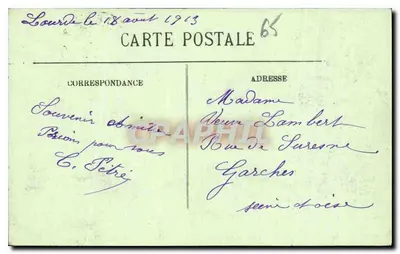 Lourdes le 18 aout 1913
65
CARTE POSTALE
CORRESPONDANCE
ADRESSE
Souvenir Amitié
Prions pour vous
C. Pétré
Madame
Veuve Lambert
Rue de Suresne
Garches
Seine et oise